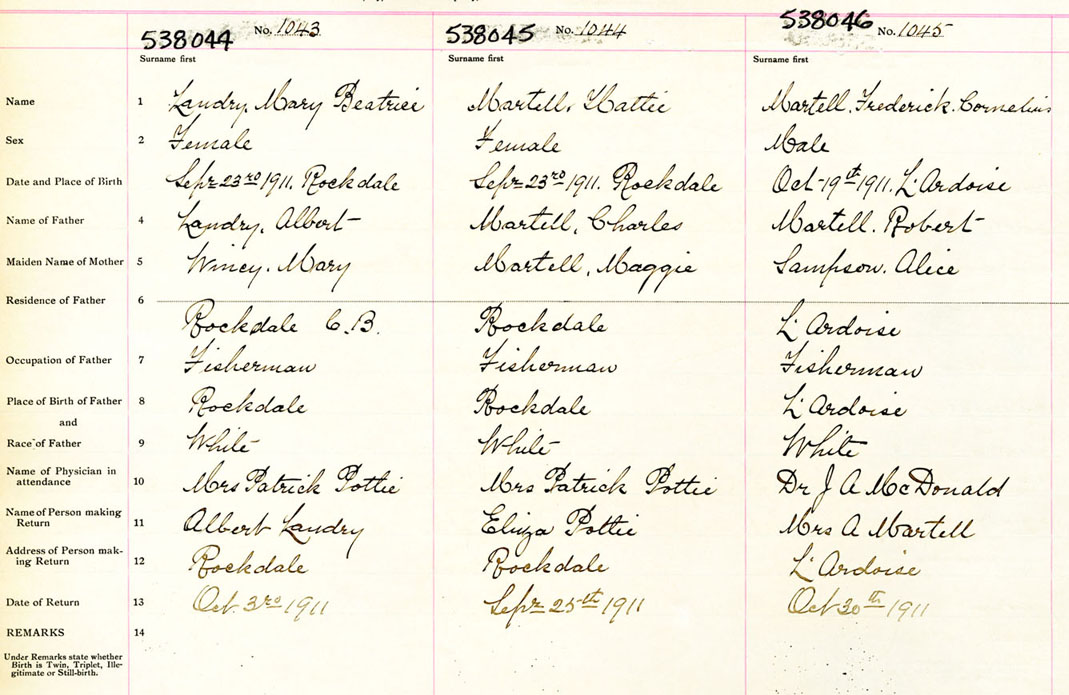 538044 No. 1043 538045 No. 1044 538046 No. 1045
Surname first Surname first Surname first
Name 1 Landry, Mary Beatrice Martell, Hattie Martell, Frederick Cornelius
Sex 2 Female Female Male
Date and Place of Birth 3 Sept 23rd 1911, Rockdale Sept 23rd 1911. Rockdale Oct 19th 1911. L'Ardoise
Name of Father 4 Landry, Albert Martell, Charles Martell. Robert
Maiden Name of Mother 5 Mary Martell, Maggie Sampson. Alice
Residence of Father 6
Rockdale C.B. Rockdale L'Ardoise
Occupation of Father 7 Fisherman Fisherman Fisherman
Place of Birth of Father 8 Rockdale Rockdale L'Ardoise
and
Race of Father 9 White White White
Name of Physician in
attendance 10 Mrs Patrick Pottie Mrs Patrick Pottie Dr J A McDonald
Name of Person making
Return 11 Albert Landry Eliza Pottie Mrs A Martell
Address of Person mak-
ing Return 12 Rockdale Rockdale L'Ardoise
Date of Return 13 Oct 3rd 1911 Sept 25th 1911 Oct 30th 1911
REMARKS 14
Under Remarks state whether
Birth is Twin, Triplet, Ille-
gitimate or Still-birth.